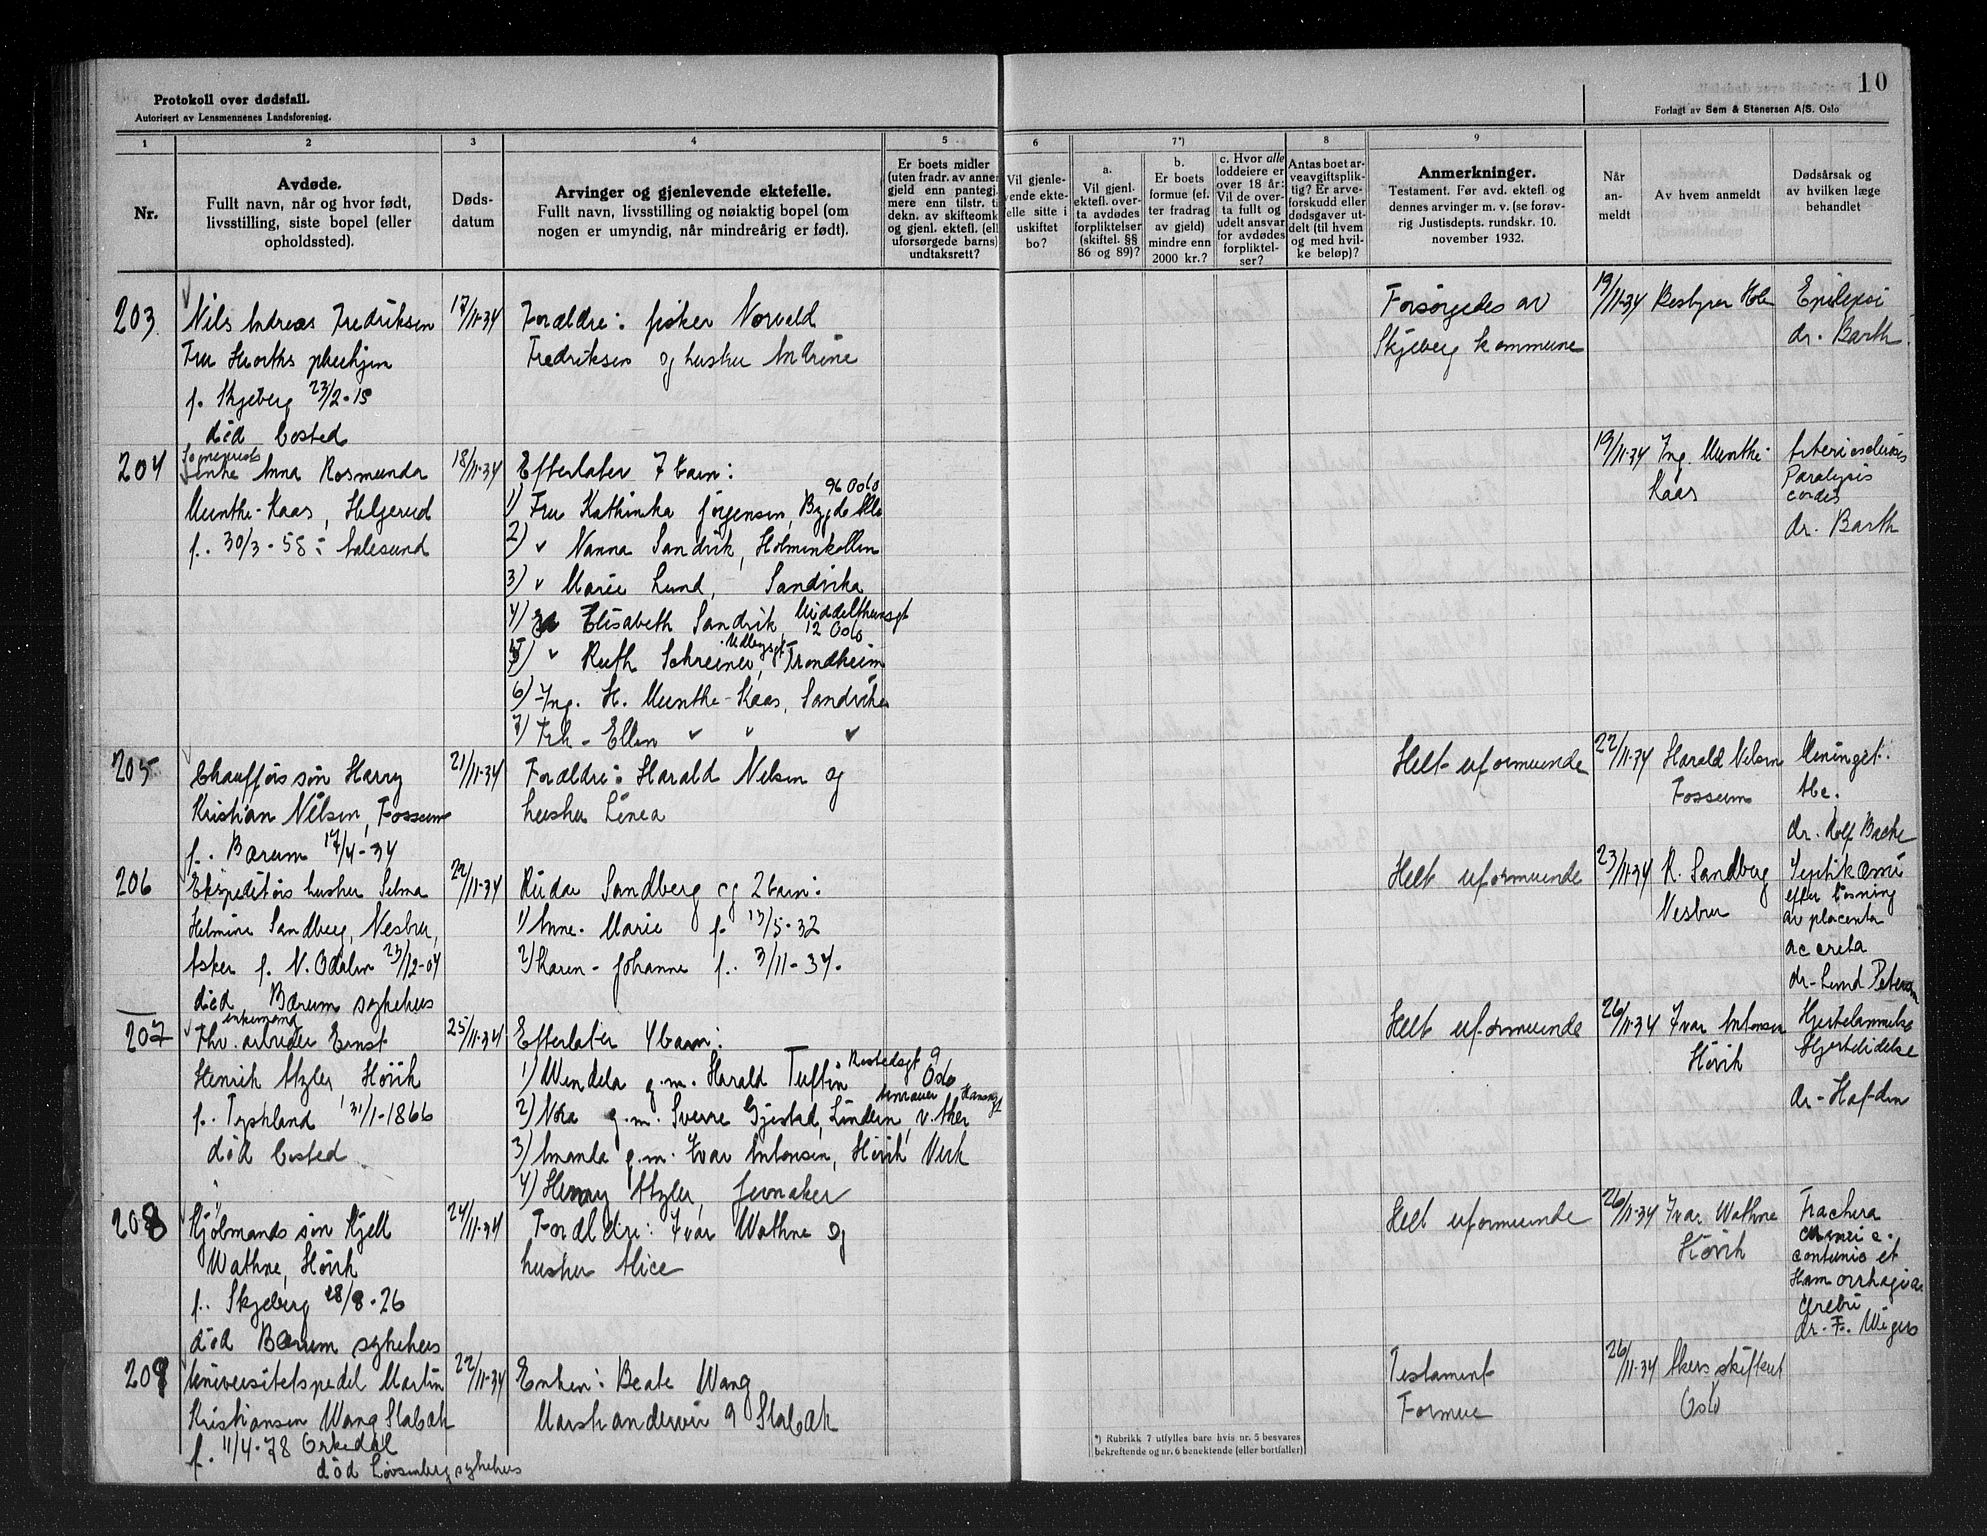 10
Protokoll over dødsfall.
Autorisert av Lensmennenes Landsforening.
Forlagt av Sem & Stenersen A/S. Oslo
1
2
3
4
5
6
7*)
8
9
Nr.
Avdøde.
Fullt navn, når og hvor født,
livsstilling, siste bopel (eller
opholdssted).
Døds-
datum
Arvinger og gjenlevende ektefelle.
Fullt navn, livsstilling og nøiaktig bopel (om
nogen er umyndig, når mindreårig er født).
Er boets midler
(uten fradr. av annen
gjeld enn pantegj.
mere enn tilstr. t.
dekn. av skifteomk
og gjenl. ektef. (ell
uforsørgede barns)
undtaksrett?
Vil gjenle-
vende ekte-
elle sitte i
uskiftet
bo?
a.
Vil gjenl.
ektef. over-
ta avdødes
forpliktelser
(skiftel. §§
86 og 89)?
b.
Er boets
formue (ef-
ter fradrag
av gjeld)
mindre enn
2000 kr.?
c. Hvor alle
loddeiere er
over 18 år:
Vil de over-
ta fullt og
udelt ansvar
for avdødes
forpliktel-
ser?
Antas boet ar-
veavgiftsplik-
tig? Er arve-
forskudd eller
dødsgaver ut-
delt (til hvem
og med hvil-
ke beløp)?
Anmerkninger.
Testament. Før avd. ektefl. og
dennes arvinger m. v. (se forøv-
rig Justisdepts. rundskr. 10.
november 1932.
Når
an-
meldt
Av hvem anmeldt
Dødsårsak og
av hvilken læge
behandlet
203
Nils Andreas Fredriksen
Fru Hiorths pleiehjem
f. Skjeberg 23/2-15
død bosted
17/11-34
Forældre: fisker Norvald
Fredriksen og hustru Andrine
Forsørgedes av
Skjeberg kommune
19/11-34
Bestyrer Holm
Epilepsi
dr. Barth.
204
enke Anna Rosmunda
Munthe-Kaas, Helgerud
f. 30/3-58 i Aalesund
18/11-34
Efterlater 7 barn:
96 Oslo
1) Fru Kathinka Jørgensen, Bygdø Alle
2) " Nanna Sandvik, Holmenkollen
3) " Marie Lund, Sandvika
4) Elisabeth Sandvik, Middelthunsgt
12 Oslo
5) " Ruth Schreiner, Trondheim
6) Ing. H. Munthe-Kaas, Sandvika
7) Frk. Ellen " " "
19/11-34
Ing. Munthe-
Kaas
Arteriosclerosis
Paralysis
cordis
dr. Barth
205
Chaufførs søn Harry
Kristian Nilsen, Fossum
f. Bærum 17/4-34
21/11-34
Forældre: Harald Nilsen og
hustru Linea
Helt uformuende
22/11-34
Harald Nilsen
Fossum
Meningit.
tbc.
dr. Rolf Bache
206
Ekspeditørs hustru Selma
Helmine Sandberg, Nesbru,
Asker f. N. Odalen 23/12-04
død Bærum sykehus
22/11-34
Reidar Sandberg og 2 barn:
1) Anne-Marie f. 13/5-32
2) Karen-Johanne f. 3/11-34.
Helt uformuende
23/11-34
R. Sandberg
Nesbru
Septikæmi
efter løsning
av placenta
accreta
dr. Lund Petersen
207
enkemand
Fhv. arbeider Ernst
Henrik Atzler, Høvik
f. Tyskland 31/1-1866
død bosted
25/11-34
Efterlater 4 barn:
1) Wendela g.m. Harald Tuftin Rostedsgt 9
Oslo
2) Nora g.m. Sverre Gjestad, Lindern, v. Aker
3) Amanda g.m. Ivar Antonsen, Høvik Verk
4) Henry Atzler, Jevnaker
Helt uformuende
26/11-34
Ivar Antonsen
Høvik
Hjertelammelse
Hjertelidelse
dr. Hafden
208
Sjømands søn Kjell
Wathne, Høvik
f. Skjeberg 28/8-26
død Bærum sykehus
24/11-34
Forældre: Ivar Wathne og
hustru Alice
Helt uformuende
26/11-34
Ivar Wathne
Høvik
Fractura
cranii c.
contusio et
Hæmorrhagia
cerebri
dr. F.
209
Universitetspedel Martin
Kristiansen Wang Stabæk
f. 11/4-78 Orkedal
død Lovisenberg sykehus
22/11-34
Enken: Beate Wang
Marstrandervei 9 Stabæk
Testament
Formue
26/11-34
Akers skifterett
Oslo
*) Rubrikk 7 utfylles bare hvis nr. 5 besvares
bekreftende og nr. 6 benektende (eller bortfaller)